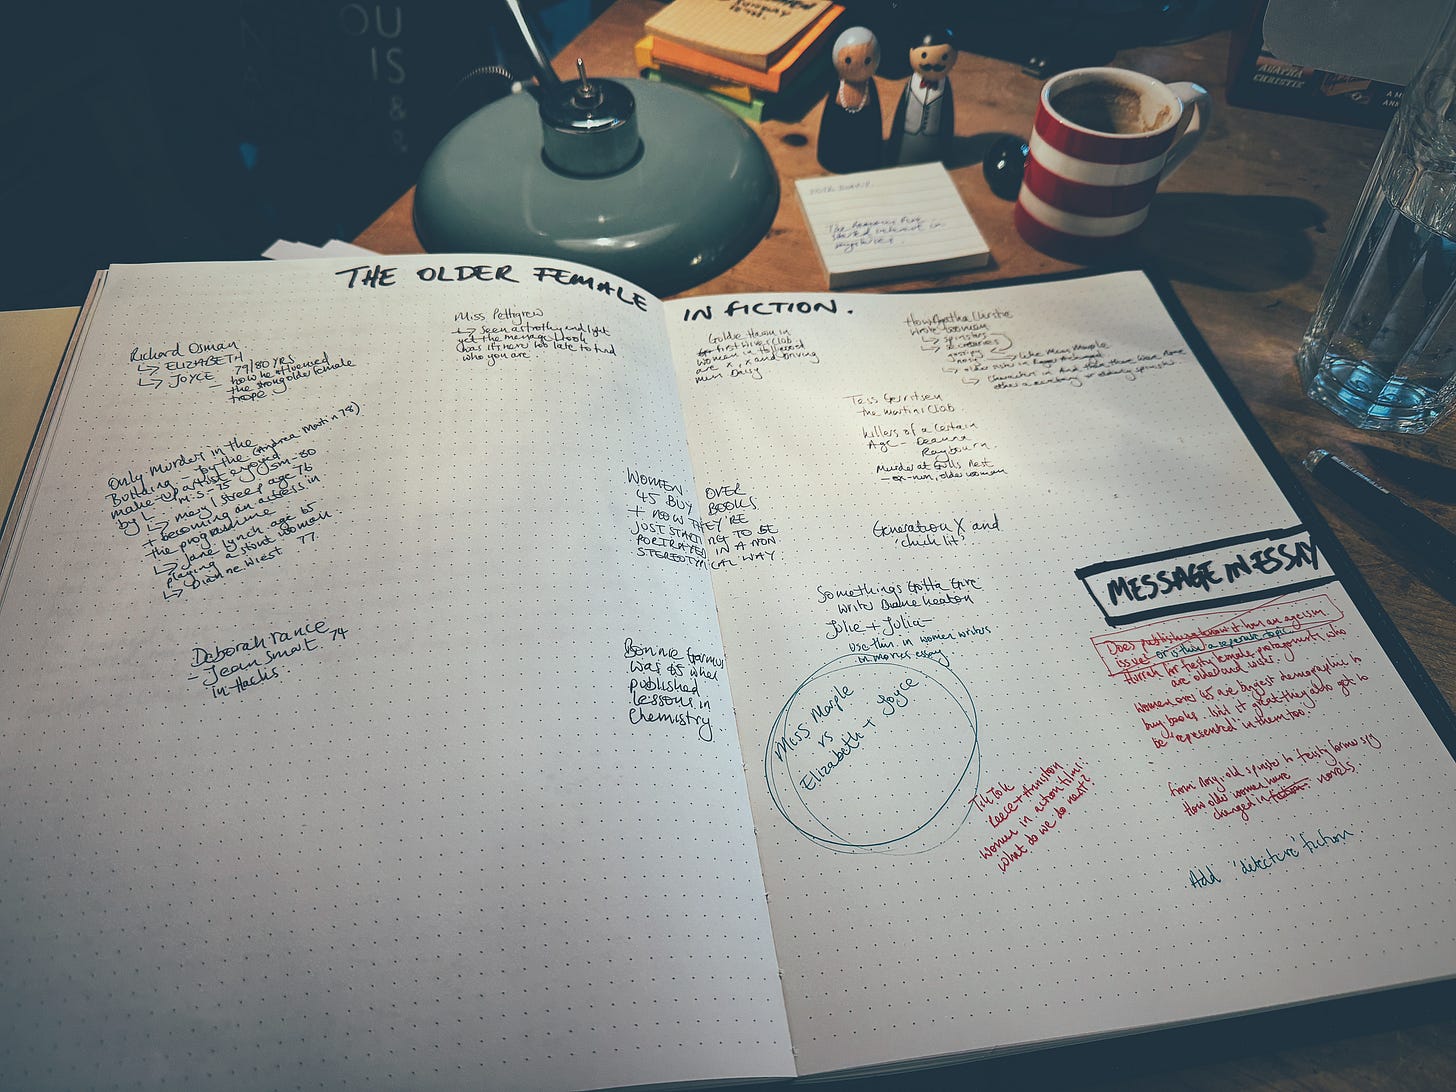 OU
IS
&
&
AGATHA
CHRISTIE
THE OLDER FEMALE IN FICTION.
Richard Osman
↳ ELIZABETH
↳ JOYCE 79/80 YRS
- how he influenced
the strong older female
trope
Miss Pettigrew
↳ seen as frothy and light
yet the message I took
was it's never too late to find
who you are
Only Murder in the
Building - by the (Andrea Martin 78)
make-up artist enjoyed
by L. M.S. 75 SM-80
↳ Meryl Streep age 76
+ becoming an actress in
the programme
↳ Jane Lynch age 65
playing a stunt woman.
↳ Dianne Wiest 77.
Deborah Vance
- Jean Smart 74
in Hacks
WOMEN OVER
45 BUY BOOKS
+ NOW THEY'RE
JUST STARTING TO BE
PORTRAYED IN A NON
STEREOTYPICAL WAY
Bonnie Garmus
was 65 when
published
Lessons in
Chemistry.
Goldie Hawn in
first Wives Club
Women in Hollywood
are x, x and Driving
Miss Daisy
How Agatha Christie
wrote women
↳ spinsters
↳ secretaries
gossips
nosy
↳ like Miss Marple
↳ older sister in Roger Ackroyd
↳ characters in And then there Were None
either a secretary or elderly spinster
Tess Gerritsen
the Martini Club
Killers of a Certain
Age - Deanna
Raybourn.
Murder at Gulls Nest
- ex-nun, older woman
Generation X and
'chick lit'
Somethings Gotta Give
writer Diane Keaton
Julie + Julia -
use this in women writers
in movies essay
Miss Marple
vs
Elizabeth + Joyce.
TikTok
Reece + Anniston
Women in action films!
What do we do next?
MESSAGE IN ESSAY
Does publishing know it has an ageism
issue or is this a separate topic
Hurrah for feisty female protagonists who
are older and wiser.
Women over 45 are biggest demographic to
buy books. Isn't it great they also get to
be 'represented' in them too.
From nosy, old spinster to feisty former spy
How older women have
changed in fiction novels.
Add 'detective' fiction